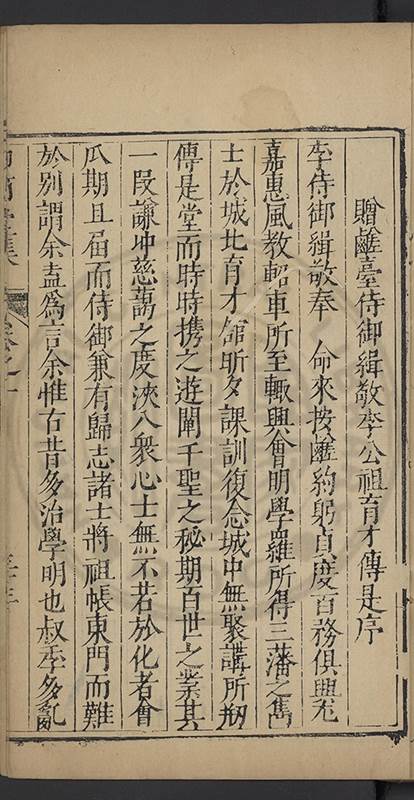 贈鹺臺侍御緝敬李公祖育才傳是序
李侍御緝敬奉　命來按鹺約躬貞度百務俱興尤
嘉惠風教軺車所至輙興會明學羅所得三藩之雋
士於城北育才舘昕夕課訓復念城中無聚講所剏
傳是堂而時時携之遊闡千聖之秘期百世之業其
一段謙冲慈藹之度浹入衆心士無不若於化者會
瓜期且届而侍御兼有歸志諸士將祖帳東門而難
於別謂余盍爲言余惟古昔多治學明也叔季多亂